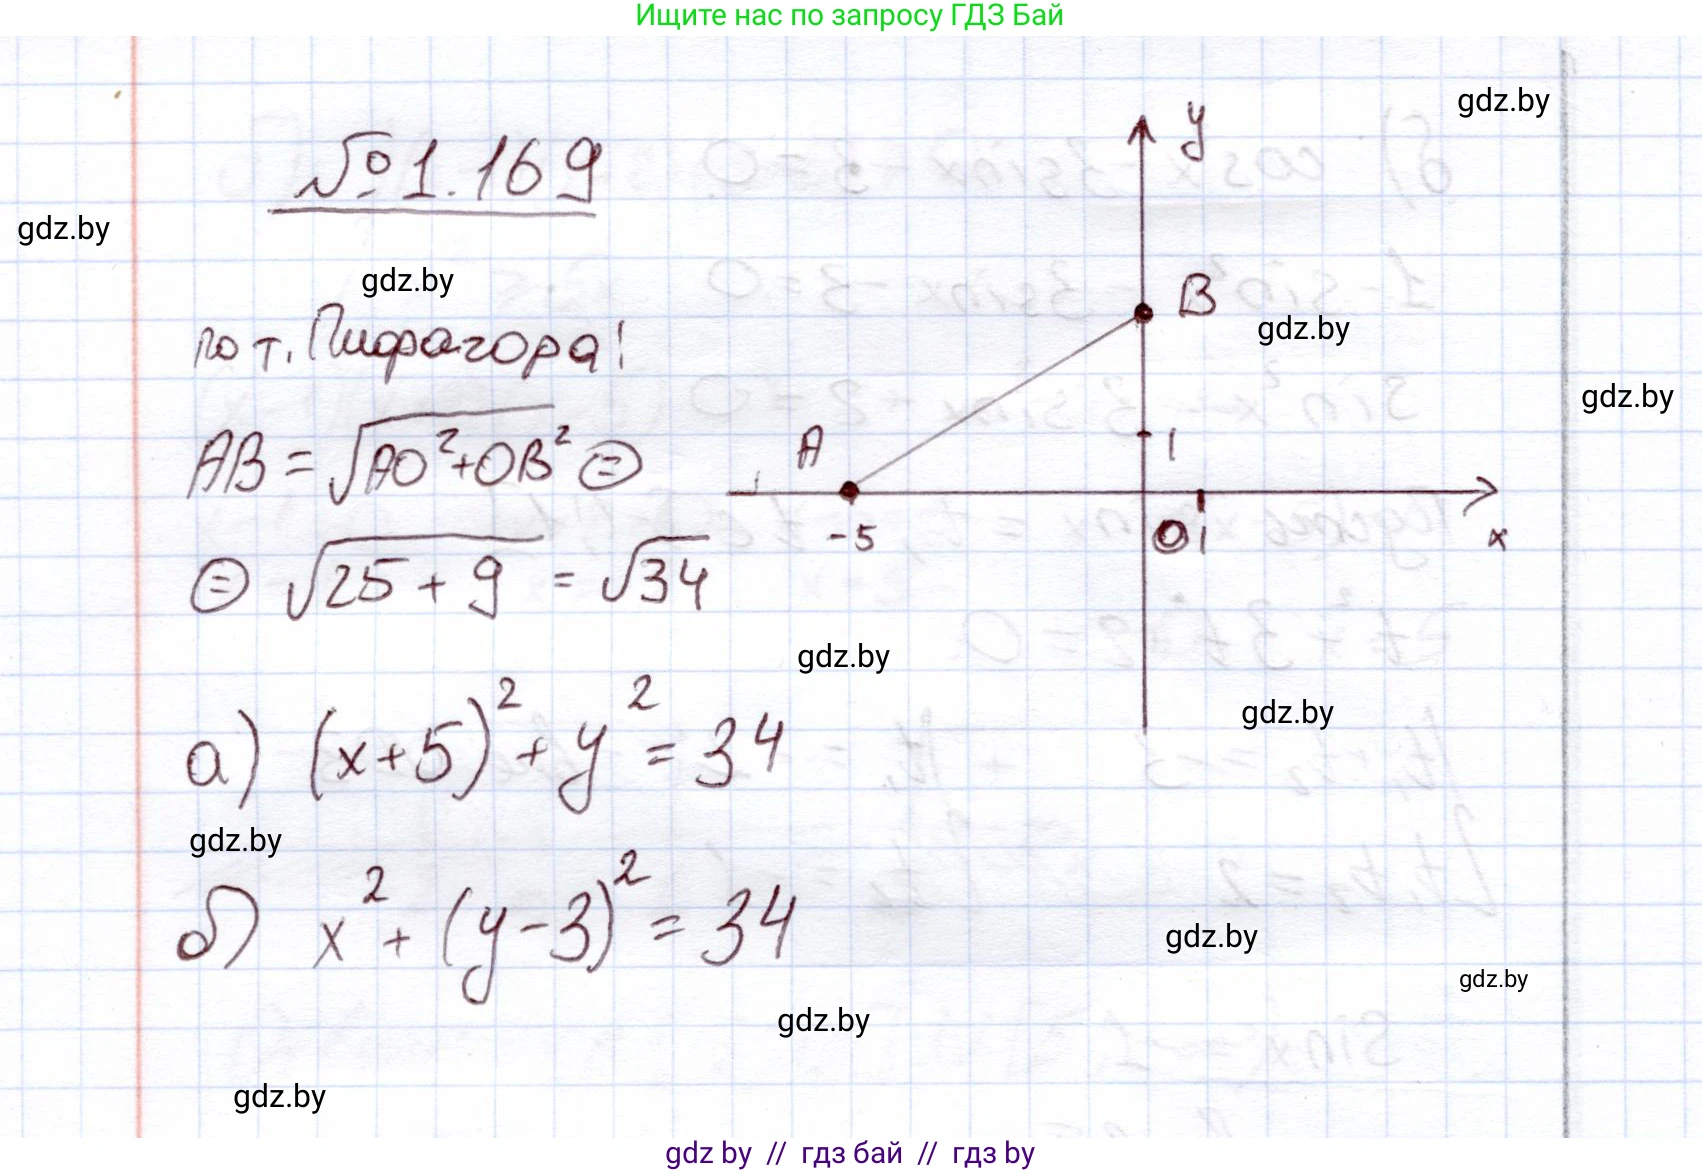 Ищите нас по запросу ГДЗ Бай
gdz.by
№1.169
y
gdz.by
gdz.by
B
gdz.by
по т. Пифагора!
gdz.by
AB = √AO²+OB² =
A
1
-5
O 1
x
= √25 + 9 = √34
gdz.by
gdz.by
а) (x+5)² + y² = 34
gdz.by
б) x² + (y-3)² = 34
gdz.by
gdz.by
gdz.by
gdz.by
gdz by // гдз бай // гдз by